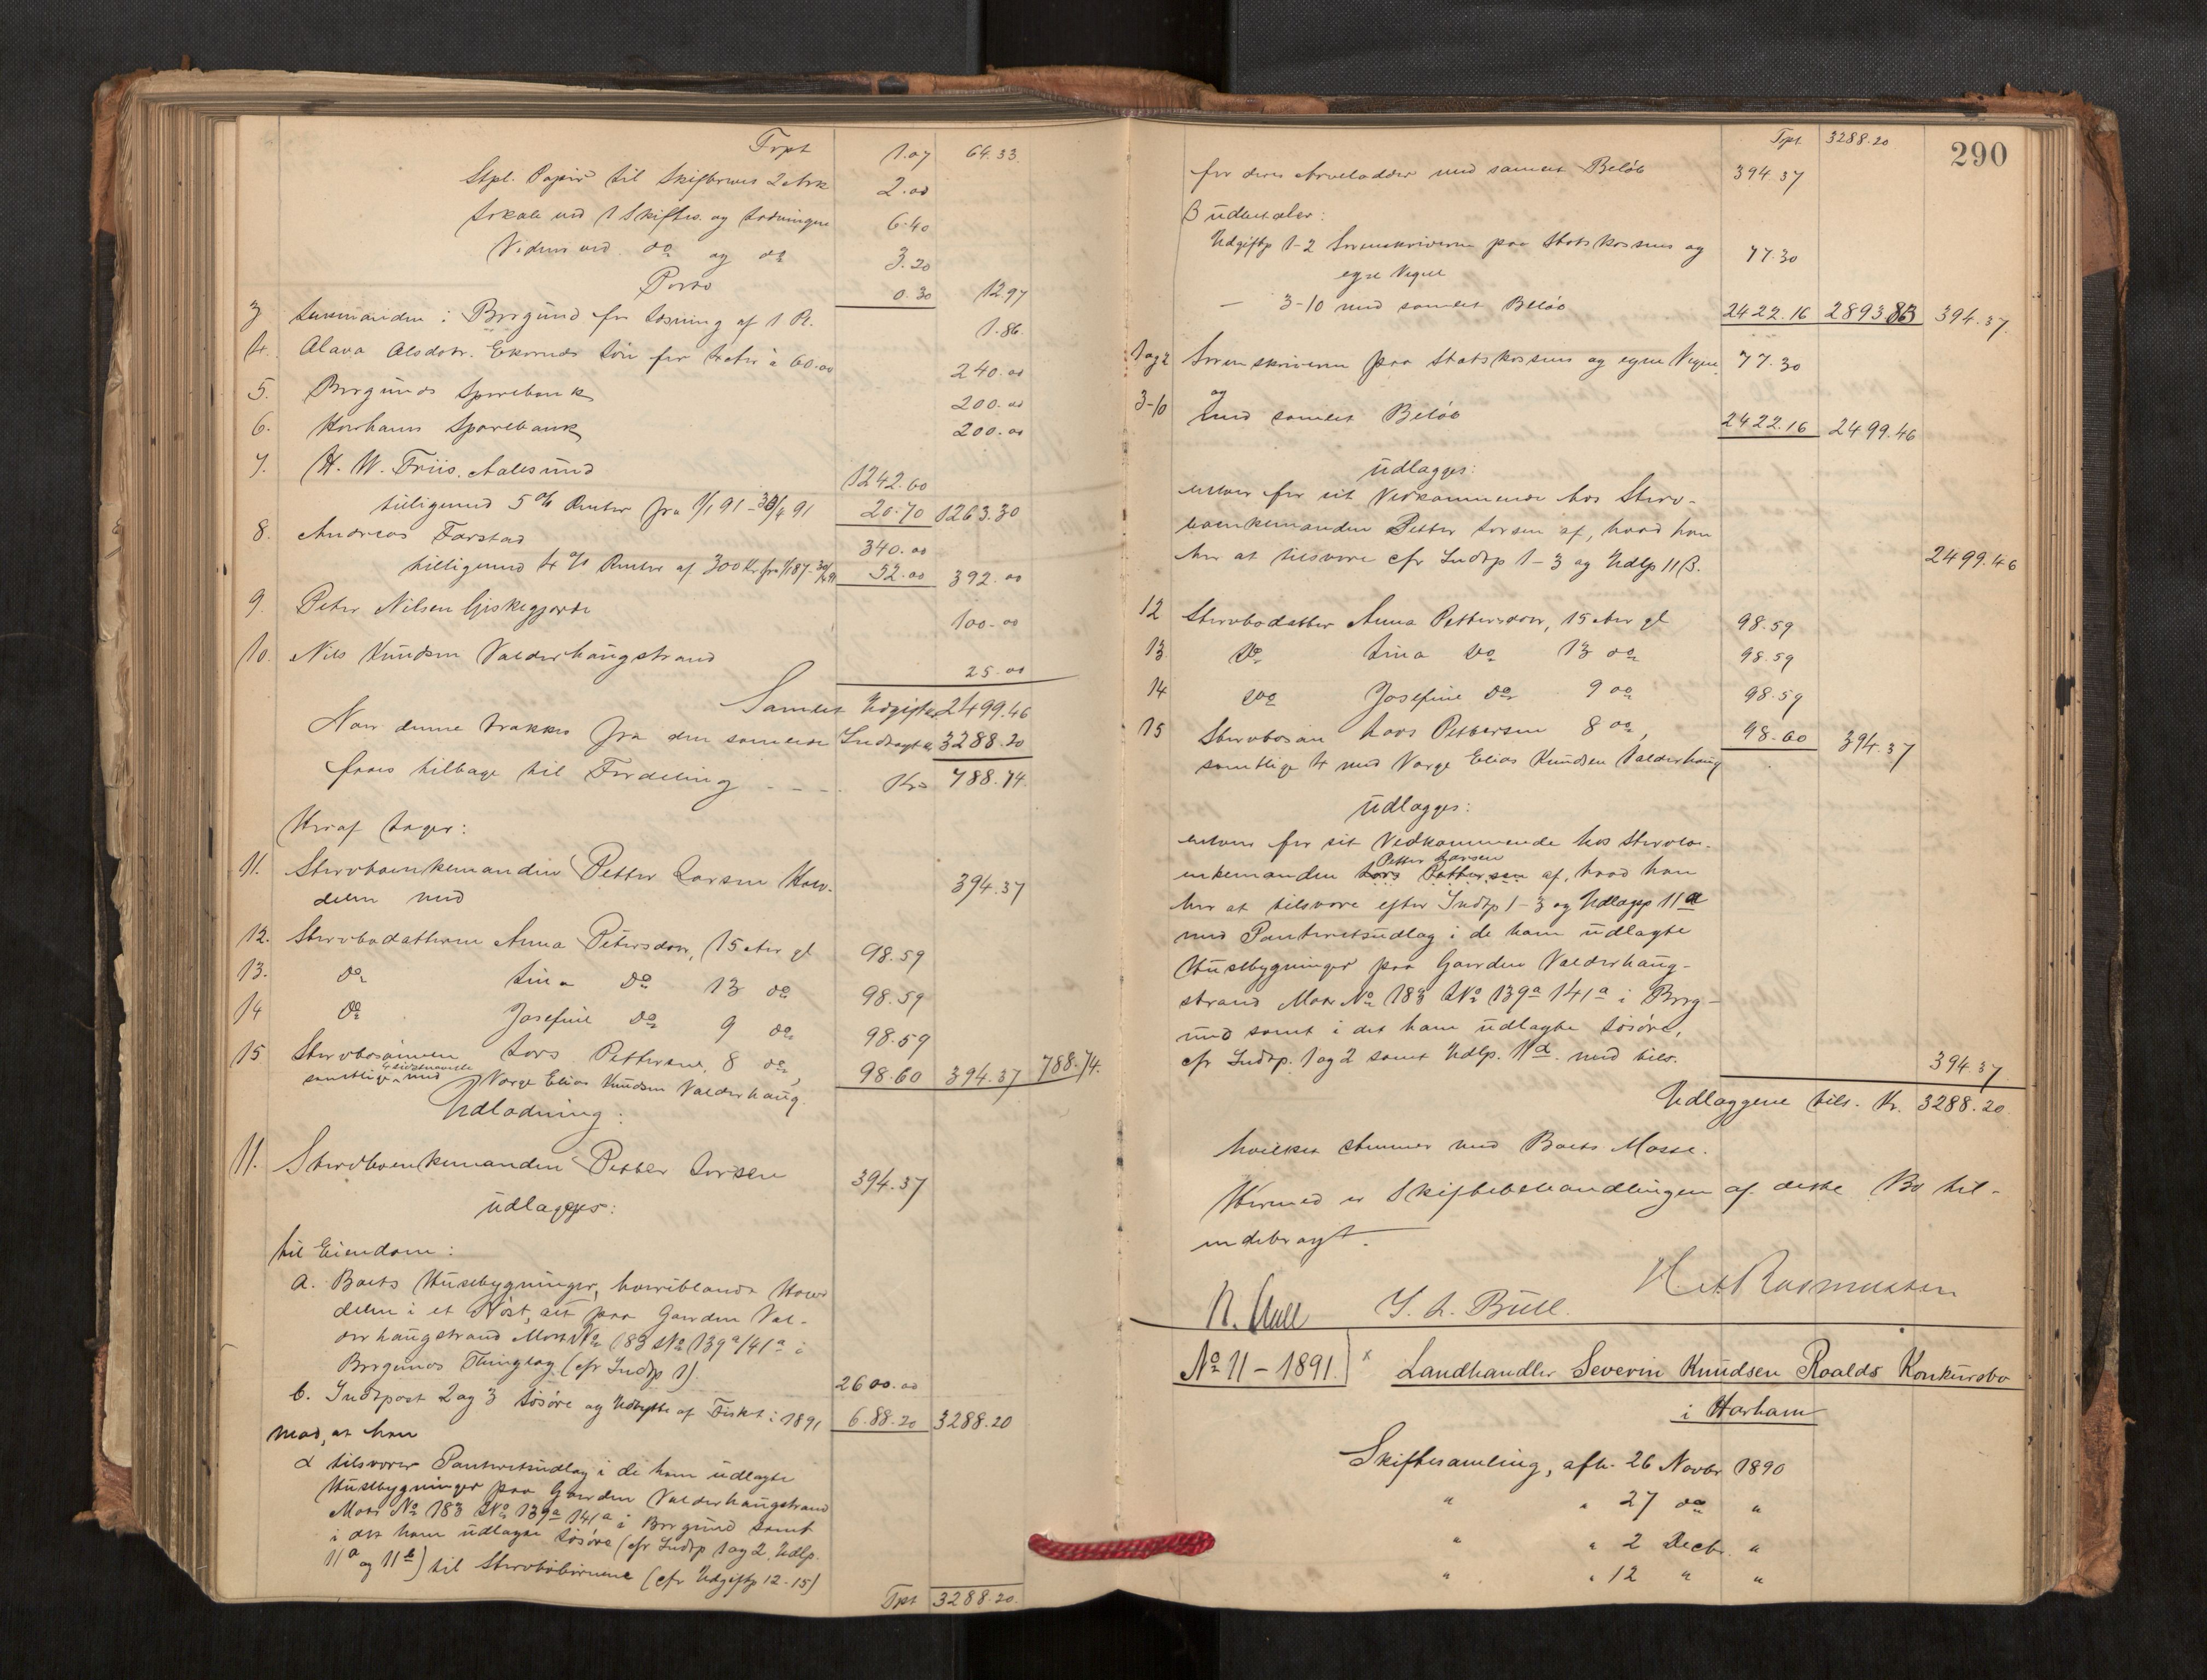 Trpt 1.07 64.33
Stpl. Papir til Skiftebrevet 2 Ark 2.00
Lokale ved 1 Skiftes. og Lodningen 6.40
Vidner ved do og do 3.20
Porto 0.30 12.97
3 Lensmanden i Borgund for Losning af 1 R. 1.86.
4. Olava Olsdotr. Ekornes Løn for 4 Aar à 60.00 240.00
5. Borgunds Sparebank 200.00
6. Harhams Sparebank 200.00
7. H. W. Friis. Aalesund 1242.60
tilligemed 5 % Renter fra 1/1 91 - 30/4 91 20.70 1263.30
8. Andreas Farstad 340.00
tilligemed 4 % Renter af 300 Kr. fra 1/1 87 - 30/4 91 52.00 392.00
9. Peter Nilsen Giskegjerde 100.00
10. Nils Knudsen Valderhaugstrand 25.00
Samlet Udgifter 2499.46
Naar denne trækkes fra den samlede Indtægt Kr 3288.20
faaes tilbage til Fordeling - - - Kr. 788.74.
Heraf tager:
11. Stervboenkemanden Petter Larsen Hov-
delen med 394.37
12. Stervbodatteren Anna Petersdotr, 15 Aar gl 98.59
13. do Lina do 13 do 98.59
14 do Josefine do 9 do 98.59
15 Stervbosønnen Lars Pettersen, 8 do, 98.60 394.37 788.74.
samtlige med Værge Elias Knudsen Valderhaug.
Udlodning:
11. Stervboenkemanden Petter Larsen 394.37
udlægges:
til Eiendom:
a. Boets Husebygninger, hvoriblandt Hoved
delen i et Nøst, alt paa Gaarden Val-
derhaugstrand Matr No 183 LNo 139a 141a i
Borgunds Thinglag (cfr Indtp 1). 2600.00
b. Indtpost 2 og 3 Løsøre og Udbytte af Fisket i 1891 6.88.20 3288.20
mod, at han
α tilsvarer Panteretsudlæg i de ham udlagte
Husebygninger paa Gaarden Valderhaugstrand
Matr No 183 LNo 139a 141a i Borgund samt
i det ham udlagte Løsøre (cfr Indtp 1 og 2. Udlp.
11a og 11b) til Stervbobørnene (cfr Udgiftp 12-15)
Trpt 3288.20.
Trpt. 3288.20
290
for deres Arvelodder med samlet Beløb 394.37
β udbetaler:
Udgiftp 1-2 Sorenskriveren paa Statskassens og 77.30
egne Vegne
— 3-10 med samlet Beløb 2422.16 2893.83 394.37.
1 og 2 Sorenskriveren paa Statskassens og egne Vegne 77.30
og
3-10 med samlet Beløb 2422.16 2499.46
udlægges:
enhver for sit Vedkommende hos Stervb-
boenkemanden Petter Larsen af, hvad han
har at tilsvare cfr Indtp 1-3 og Udlp 11 β. 2499.46
12 Stervbodatter Anna Pettersdotr, 15 Aar gl 98.59
13 do Lina do 13 do 98.59
14 do Josefine do 9 do 98.59
15 Stervbosøn Lars Pettersen 8 do, 98.60 394.37
samtlige 4 med Værge Elias Knudsen Valderhaug
udlægges:
enhver for sit Vedkommende hos Stervbo-
Petter Larsen
enkemanden Lars Pettersen af, hvad han
har at tilsvare efter Indtp 1-3 og Udlægp 11 α
med Panteretsudlæg i de ham udlagte
Husebygninger paa Gaarden Valderhaug-
strand Matr No 183 LNo 139a 141a i Borg-
und samt i det ham udlagte Løsøre,
cfr Indtp. 1 og 2 samt Udlp. 11 α. med tils. 394.37
Udlæggene tils. Kr. 3288.20.
hvilket stemmer med Boets Masse.
Hermed er Skiftebehandlingen af dette Bo til-
endebragt.
J. L. Bull. Rasmussen
No 11 - 1891. x Landhandler Severin Knudsen Roalds Konkursbo
i Harham
Skiftesamling, afh. 26 Novbr 1890
" " 27 do "
" " 2 Decbr. "
" " 12 " "